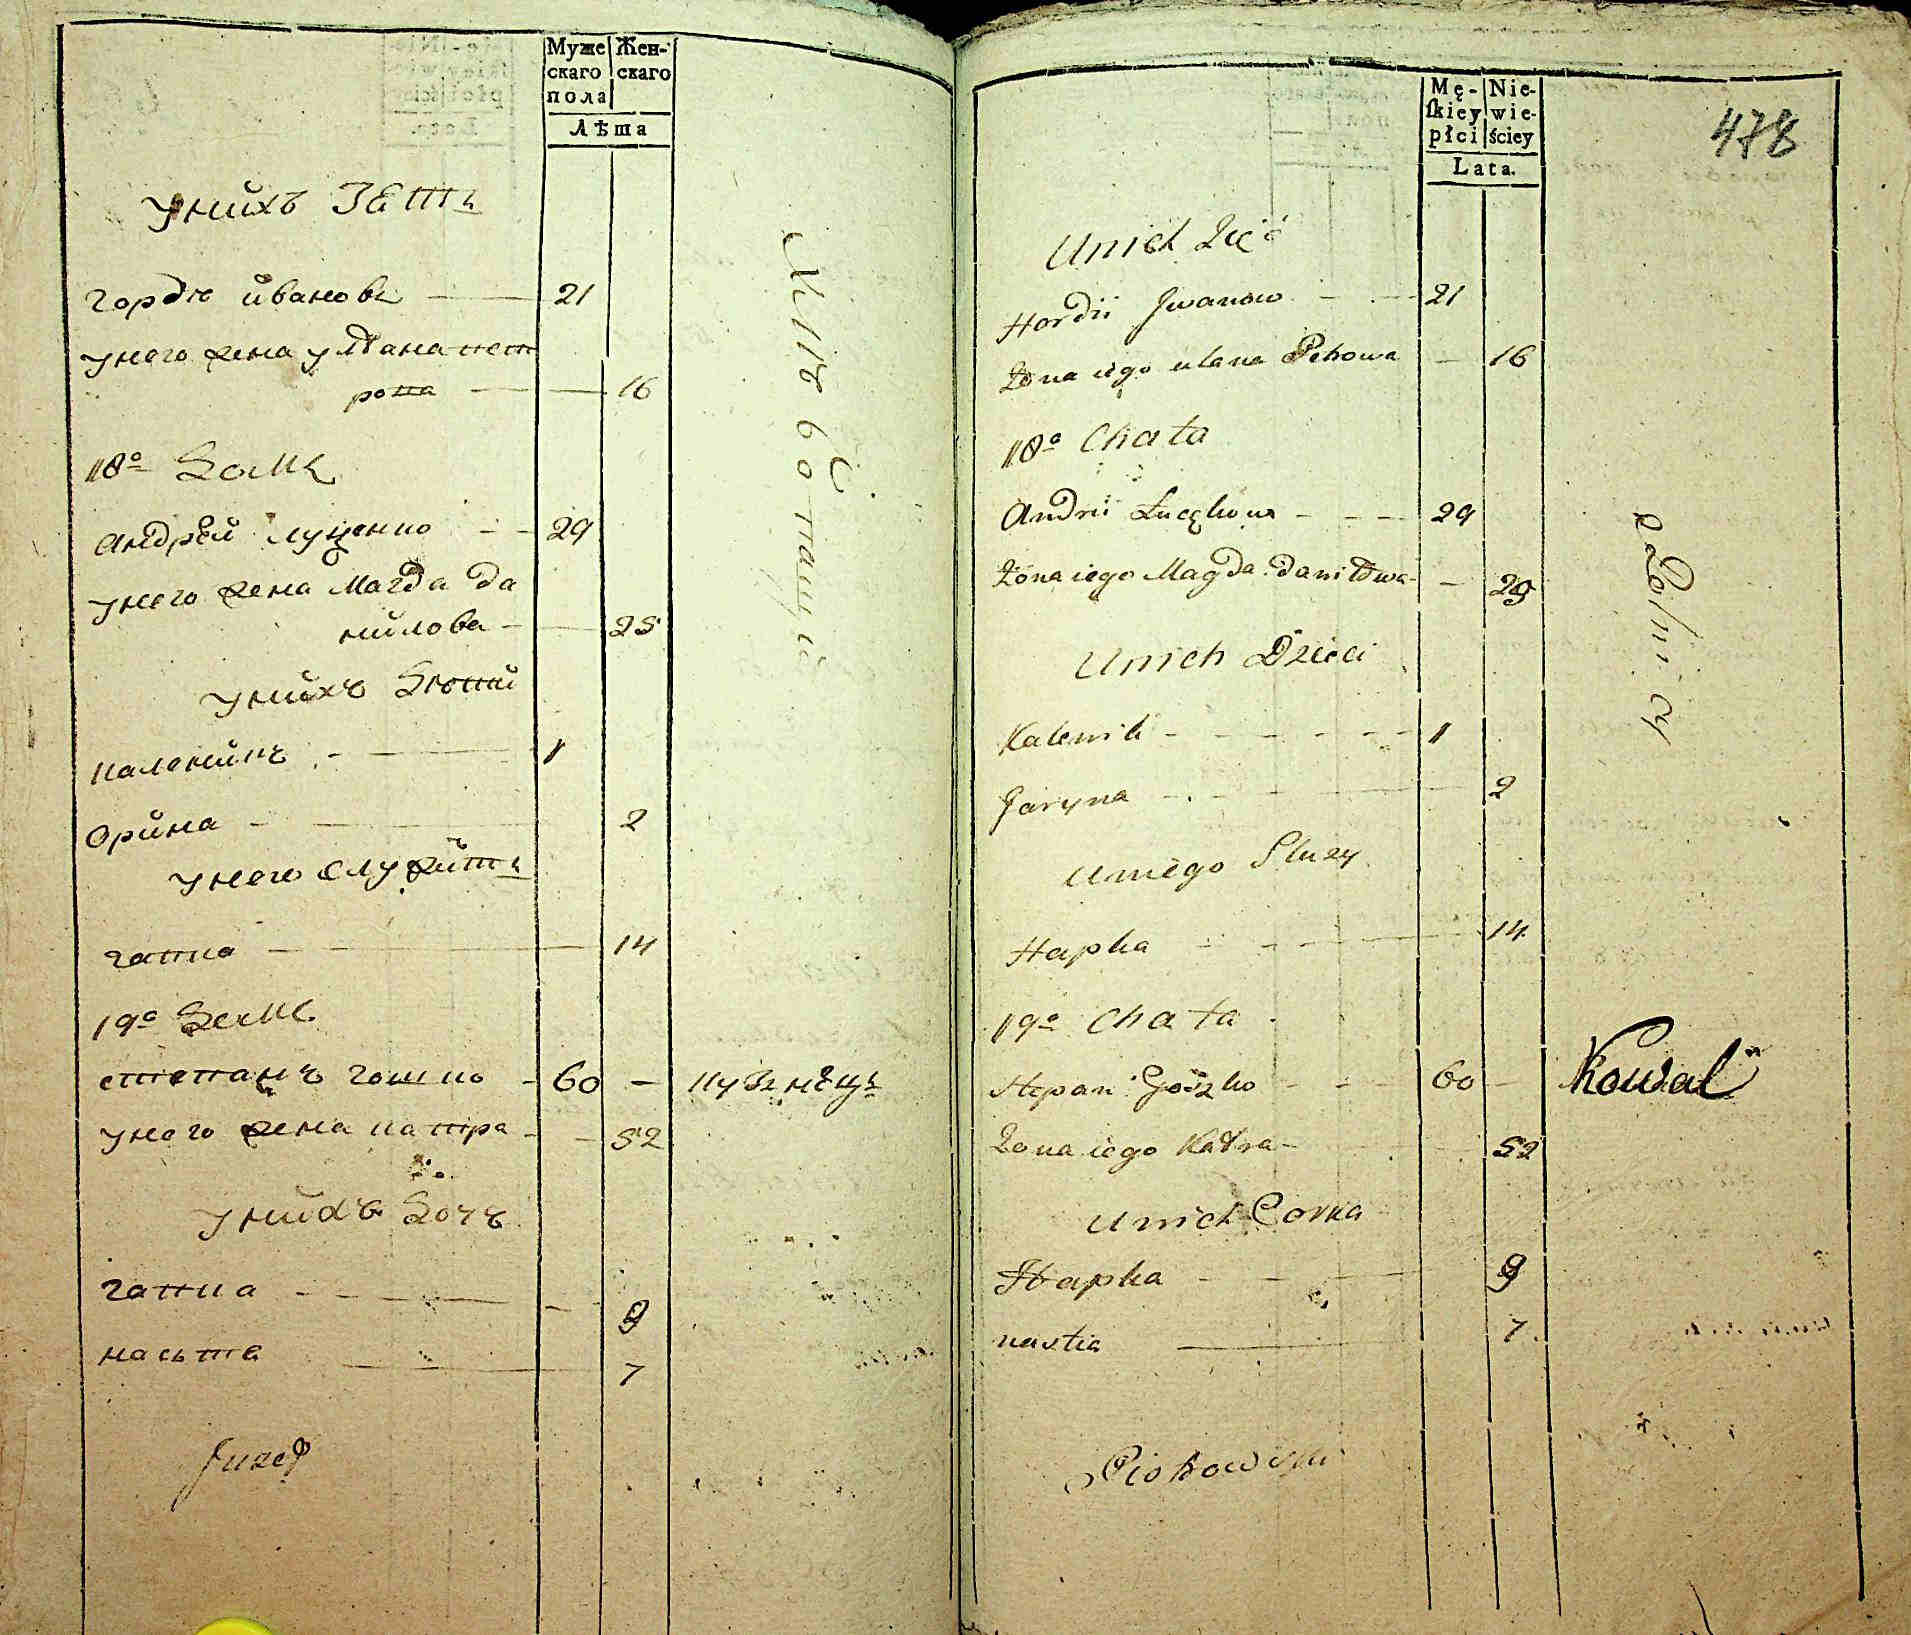 Муже
скаго
пола
Жен-
скаго
Лѣта
унихъ зать
гордѣ йвановъ — 21
унего жена улꙗна пет
рова — 16
18º Домъ
андрей луценко — 29
унего жена магда да
нилова — 25
унихъ Дѣти
каленикъ — 1
орина — 2
унего служитъ
гапка — 14
19º Домъ
степанъ гошко — 60 — кузнѣцъ
унего жена катра — 52
унихъ Дочъ
гапка — 9
настя — 7
Juzef
478
Mę-
skiey
płci
Nie-
wie-
ściey
Lata.
Unich Zięć
Hordii Jwanow — 21
Żona iego ulana Petrowa — 16
18º Chata
Andrii — 29
Żona iego Magda daniłowa — 29
Unich Dzieci
Kalenik — 1
Jaryna — 2
Uniego Służy
Hapka — 14
19º Chata
Stepan Goszko — 60 — Kowal
Żona iego Katra — 52
Unich Corka
Hapka — 9
nastia — 7
Rolnicy
Piotrowski